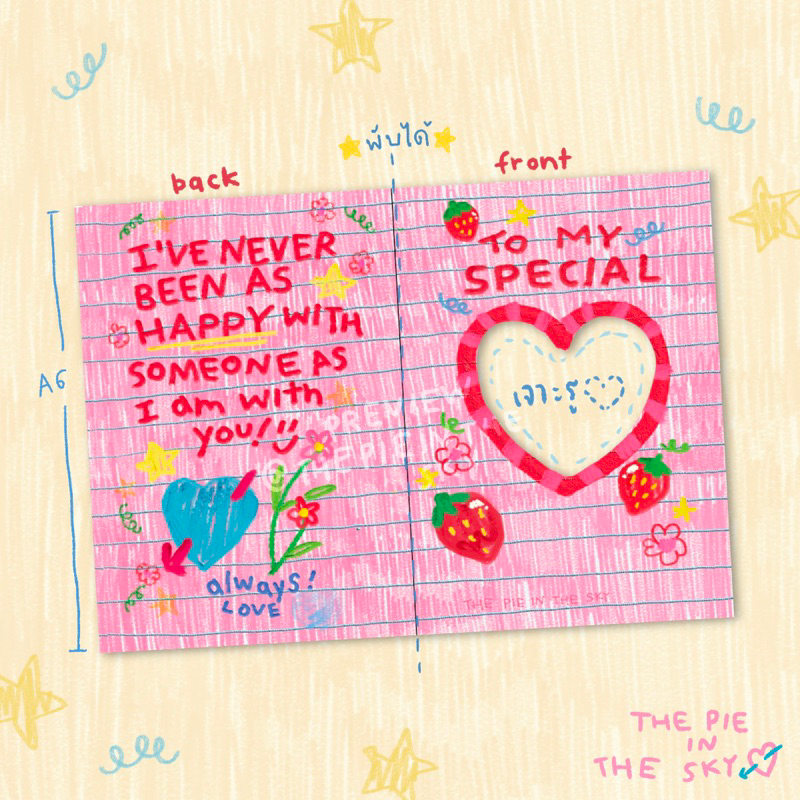 พับได้
back
front
A6
I'VE NEVER
BEEN AS
HAPPY WITH
SOMEONE AS
I am with
you!
always!
LOVE
TO MY
SPECIAL
เจาะรู
THE PIE IN THE SKY
PREVIEW
THE PIE
IN
THE SKY